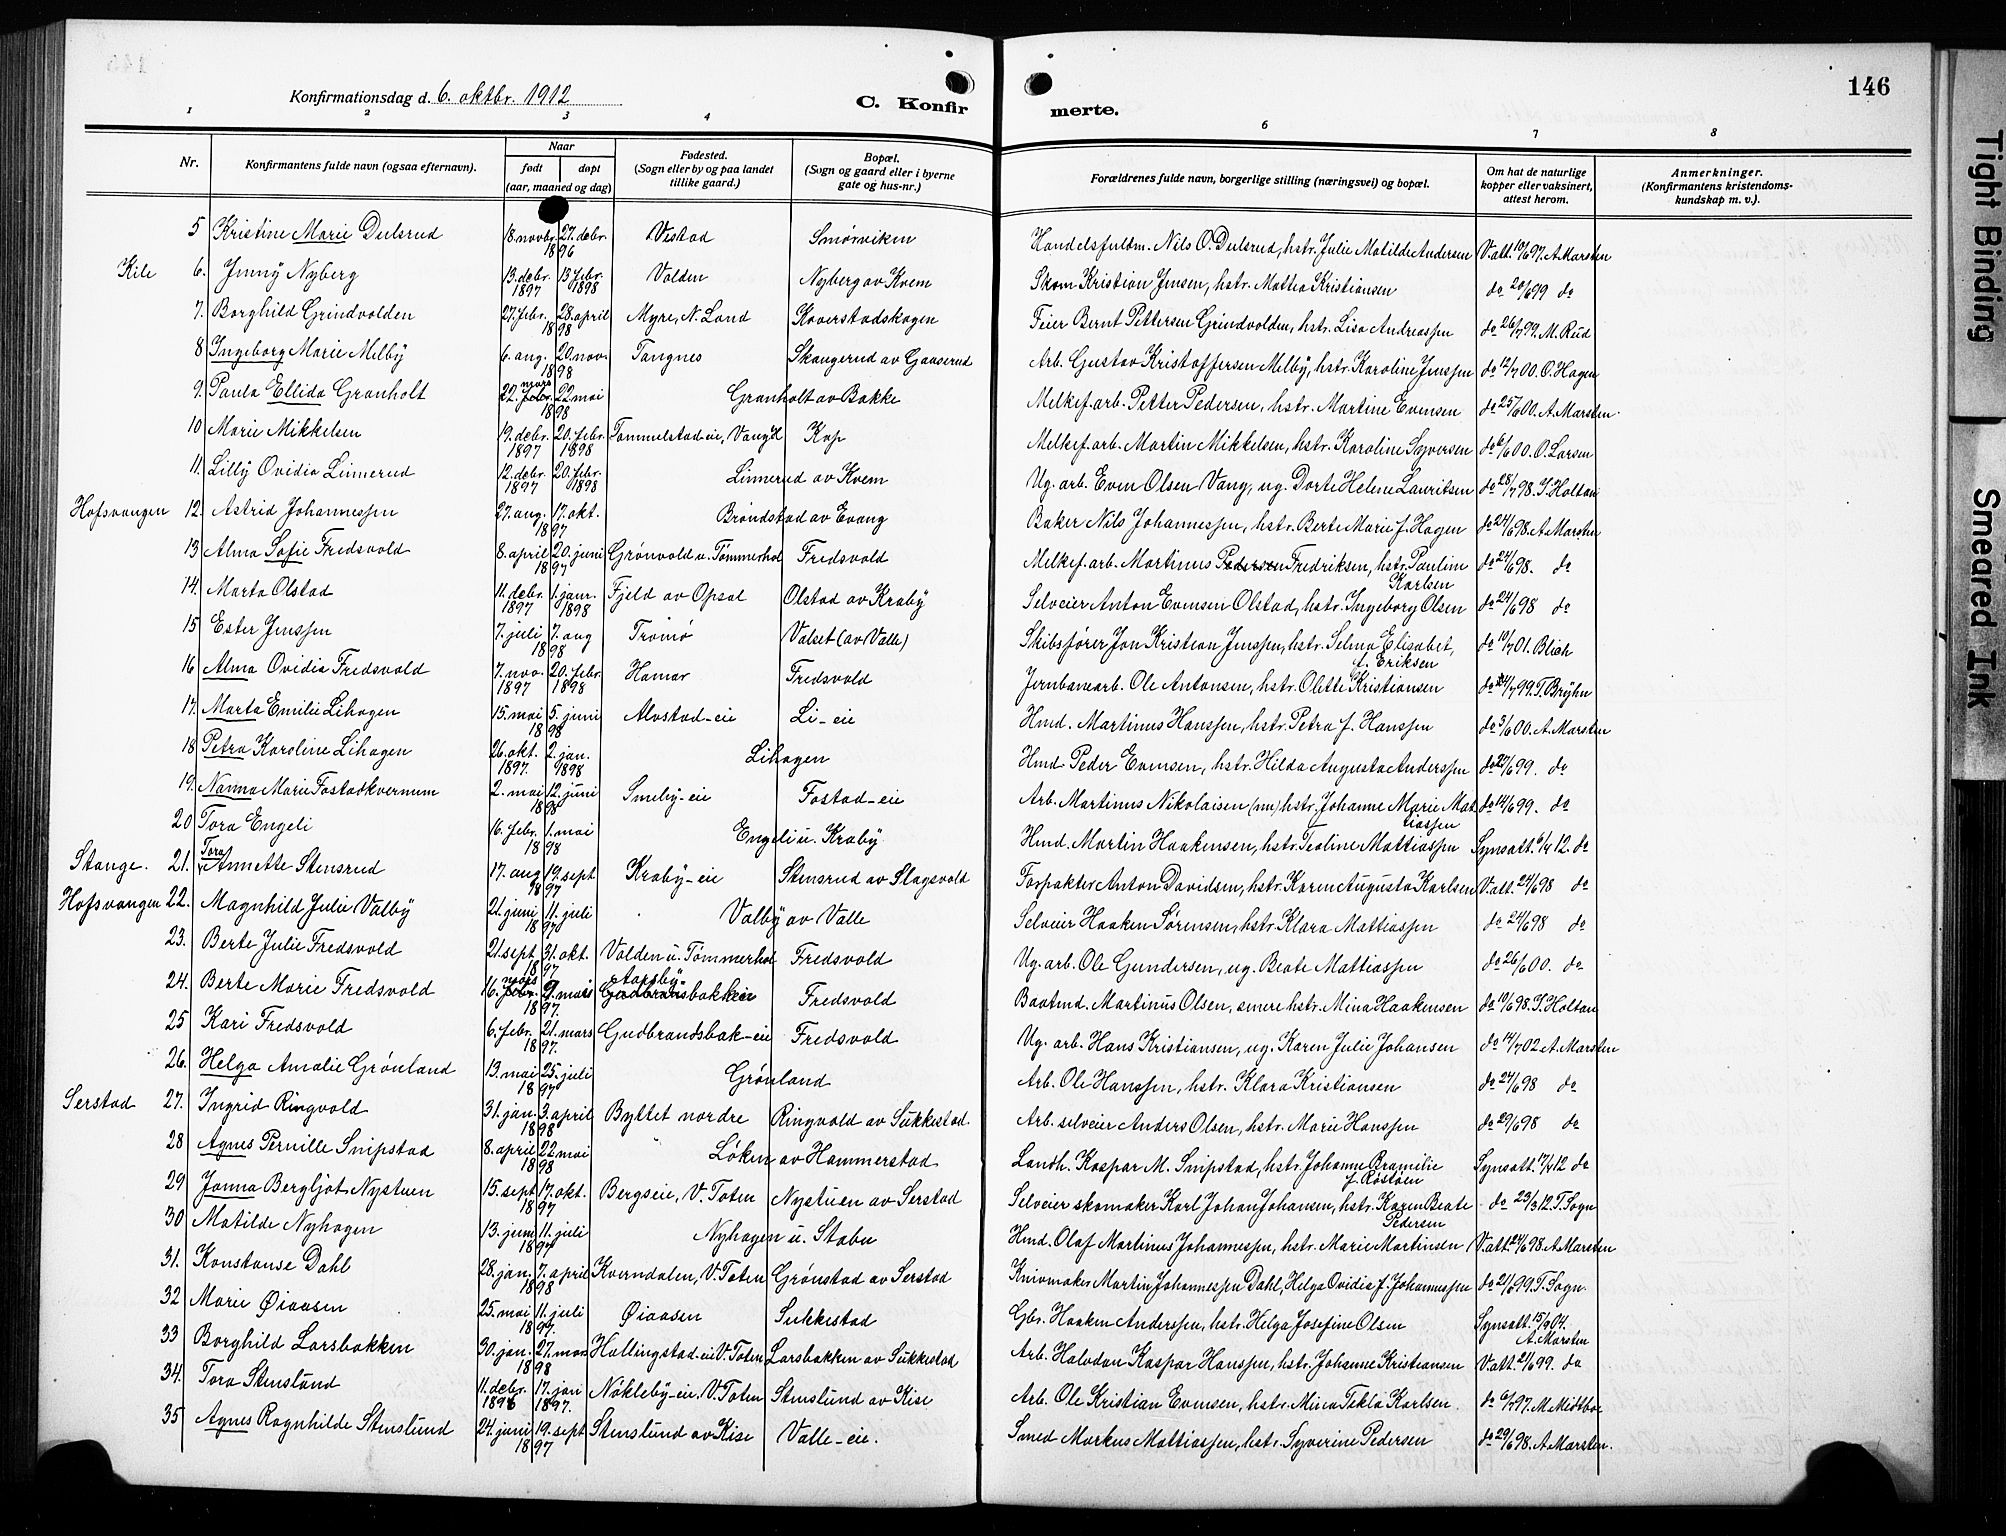 146
Konfirmationsdag d. 6. oktbr. 1912
C. Konfir merte.
1 2 3 4 6 7 8
Nr.
Konfirmantens fulde navn (ogsaa efternavn).
Naar
født døpt
(aar, maaned og dag)
Fødested.
(Sogn eller by og paa landet
tillike gaard.)
Bopæl.
(Sogn og gaard eller i byerne
gate og hus-nr.)
Forældrenes fulde navn, borgerlige stilling (næringsvei) og bopæl.
Om hat de naturlige
kopper eller vaksinert,
attest herom.
Anmerkninger.
(Konfirmantens kristendoms-
kundskap m. v.).
5 Kristine Marie Deilsrud 18. novbr. 27. debr. 1896 Vestad Smørviken Handelsfuldm. Nils O. Deilsrud, hstr. Julie Matilde Andersen V.att. 10/6 97. A. Marsten
Kile 6. Jenny Nyberg 13. debr. 1897 13. febr. 1898 Volden Nyberg av Kvem Skom. Kristian Jensen, hstr. Mattea Kristiansen do 20/6 99 do
7. Borghild Grindvolden 27. febr. 28. april 1898 Myre, N. Land Kaverstadskogen Feier Bernt Pettersen Grindvolden, hstr. Lisa Andreassen do 26/7 99. M. Rud
8 Ingeborg Marie Melby 6. aug. 20. nov. 1898 Tangnes Skaugerud av Gaaserud Arb. Gustav Kristoffersen Melby, hstr. Karoline Jenssen do 12/7 00. O. Hagen
9. Paula Ellida Granholt 22. mars febr. 22 mai 1898 Granholt av Bakke Melkef. arb. Petter Pedersen, hstr. Martine Evensen do 25/6 00. A. Marsten.
10 Marie Mikkelsen 19. debr. 1897 20. febr. 1898 Tommelstad-eie, Vang H Kap Melkef. arb. Martin Mikkelsen, hstr. Karoline Syversen do 6/6 00. O. Larsen
11. Lilly Ovidia Linnerud 12. debr. 1897 20. febr. 1898 Linnerud av Kvem Ug. arb. Even Olsen Vang, ug. Dorte Helene Lauritsen do 28/7 98. J. Holtan
Hofsvangen 12. Astrid Johannessen 27. aug. 17. okt. 1897 Brøndstad av Evang Baker Nils Johannessen, hstr. Berte Marie f. Hagen do 24/6 98. A. Marsten
13 Alma Sofie Fredsvold 8. april 20. juni 1897 Grønvold u. Tømmerhol Fredsvold Melkef. arb. Martinus Pedersen Fredriksen, hstr. Pauline Karlsen do 24/6 98. do
14. Marta Olstad 11. debr. 1897 1. janr. 1898 Fjeld av Opsal Olstad av Kraby Selveier Anton Evensen Olstad, hstr. Ingeborg Olsen do 24/6 98 do
15 Ester Jenssen 7. juli 7. aug 1898 Tromø Valset (av Valle) Skibsfører Jon Kristian Jenssen, hstr. Selma Elisabet, f. Eriksen do 10/7 01. Blich
16 Alma Ovidia Fredsvold 7. nov. 1897 20. febr. 1898 Hamar Fredsvold Jernbanearb. Ole Antonsen, hstr. Olette Kristiansen do 24/7 99. T. Bryhn
17. Marta Emilie Lihagen 15. mai 5. juni 1898 Alvstad-eie Li-eie Hmd. Martinus Hanssen, hstr. Petra f. Hanssen do 3/6 00. A. Marsten
18 Petra Karoline Lihagen 26. okt. 1897. 2. jan. 1898 Lihagen Hmd Peder Evensen, hstr. Hilda Augusta Anderssen do 27/6 99. do
19. Nanna Marie Fostadkvernum 2. mai 12. juni 1898 Smeby-eie Fostad-eie Arb. Martinus Nikolaisen (nu) hstr. Johanne Marie Mattiassen do 14/6 99. do
20 Tora Engeli 16. febr. 1. mai 1898 Engeli u. Kraby Hmd. Martin Haakensen, hstr. Teoline Mattiassen Synsatt. 6/4 12. do
Stange. 21. Tora Annette Stensrud 17. aug 19. sept 1897 Kraby-eie Stensrud av Slagsvold Forpakter Anton Davidsen, hstr. Karen Augusta Karlsen V.att. 24/6 98 do
Hofsvangen 22. Magnhild Julie Valby 21. juni 11. juli 1897 Valby av Valle Selveier Haaken Sørensen, hstr. Klara Mattiassen do 24/6 98 do
23. Berte Julie Fredsvold 21. sept 31. okt. 1897 Volden u. Tømmerhol Fredsvold Ug. arb. Ole Gundersen, ug. Beate Mattiassen do 26/6 00. do
24. Berte Marie Fredsvold 16. mars febr. 9. mars 1897. Gudbransbakken Fredsvold Baatmd. Martinus Olsen, senere hstr. Mina Haakensen do 10/6 98. J. Holtan
25 Kari Fredsvold 6. febr. 21. mars 1897. Gudbrandsbak-eie Fredsvold Ug. arb. Hans Kristiansen, ug. Karen Julie Johansen do 14/7 02 A. Marsten
26. Helga Amalie Grønland 13. mai 25. juli 1897 Grønland Arb. Ole Hanssen, hstr. Klara Kristiansen do 24/6 98 do
Serstad 27. Ingrid Ringvold 31. jan. 3. april 1898 Byttet nordre Ringvold av Sukkestad. Arb. selveier Anders Olsen, hstr. Marie Hanssen do 29/6 98 do
28 Agnes Pernille Snipstad 8. april 22 mai 1898 Løken av Hammerstad Landh. Kaspar M. Snipstad, hstr. Johanne Bramilie f. Røstøen Synsatt. 17/4 12 do
29 Janna Bergljot Nystuen 15. sept 17. okt. 1897 Bergseie, V. Toten Nystuen av Serstad Selveier skomaker Karl Johan Johansen, hstr. Karen Beate Pedersen do 23/3 12. T. Sogn
30 Matilde Nyhagen 13. juni 11. juli 1897 Nyhagen u. Stabu Hmd. Olaf Martinus Johannessen, hstr. Marie Martinsen V.att. 24/6 98. A. Marsten
31. Konstanse Dahl 28. jan. 7. april 1898 Kverndalen, V. Toten Grønstad av Serstad Knivmaker Martin Johannessen Dahl, Helga Ovidia f. Johannessen do 21/6 99. T. Sogn.
32 Marie Øiaasen 25. mai 11. juli 1897. Øiaasen Sukkestad Gbr. Haaken Anderssen, hstr. Helga Josefine Olsen Synsatt. 15/9 04. A. Marsten
33 Borghild Larsbakken 30. jan. 27. mar 1898 Hallingstad-eie V. Toten Larsbakken av Sukkestad Arb. Halvdan Kaspar Hanssen, hstr. Johanne Kristiansen V.att. 21/6 99. do
34. Tora Stenslund 11. debr. 1896 17. jan 1897. Nøkleby-eie, V. Toten Stenslund av Kise Arb. Ole Kristian Evensen, hstr. Mina Tekla Karlsen. do 6/7 97. M. Midtbøe
35 Agnes Ragnhilde Stenslund 24. juni 19. sept 1897 Stenslund av Kise Valle-eie. Smed Markus Mattiassen, hstr. Syverine Pedersen do 29/6 98. A. Marsten.
Tight Binding
Smeared Ink